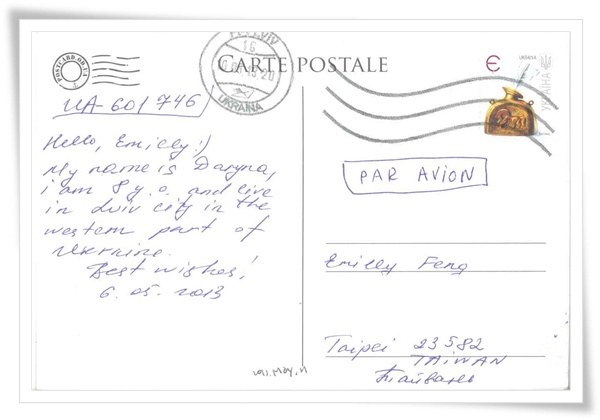 POSTCARD.CO.UA
16
UKRAINA
CARTE POSTALE
Є
UKRAINA
УКРАЇНА
UA-601746
Hello, Emilly:)
My name is Daryna,
i am 8 y.o. and live
in Lviv city in the
western part of
Ukraine.
Best wishes!
6.05.2013
PAR AVION
Emilly Feng
Taipei 23582
TAIWAN
Тайвань